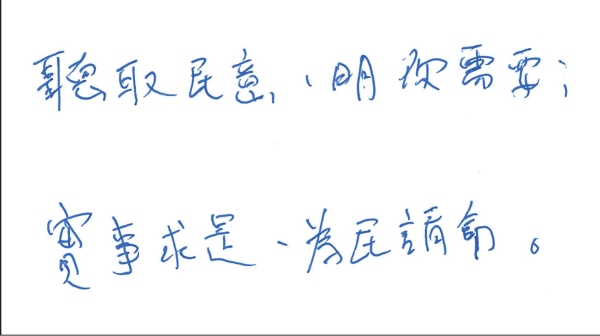 聽取民意、明察需要；
實事求是、為民請命。